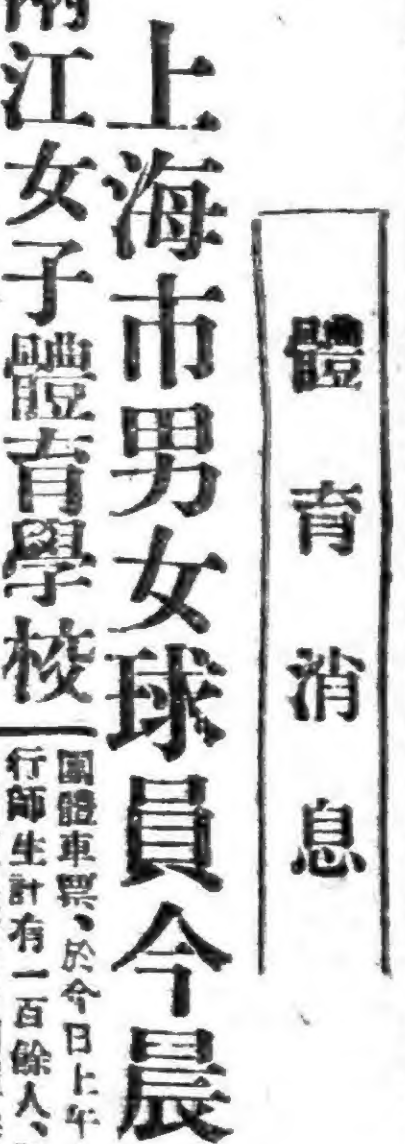 體育消息
上海市男女球員今晨
兩江女子體育學校
團體車票、於今日上午
行師生計有一百餘人、